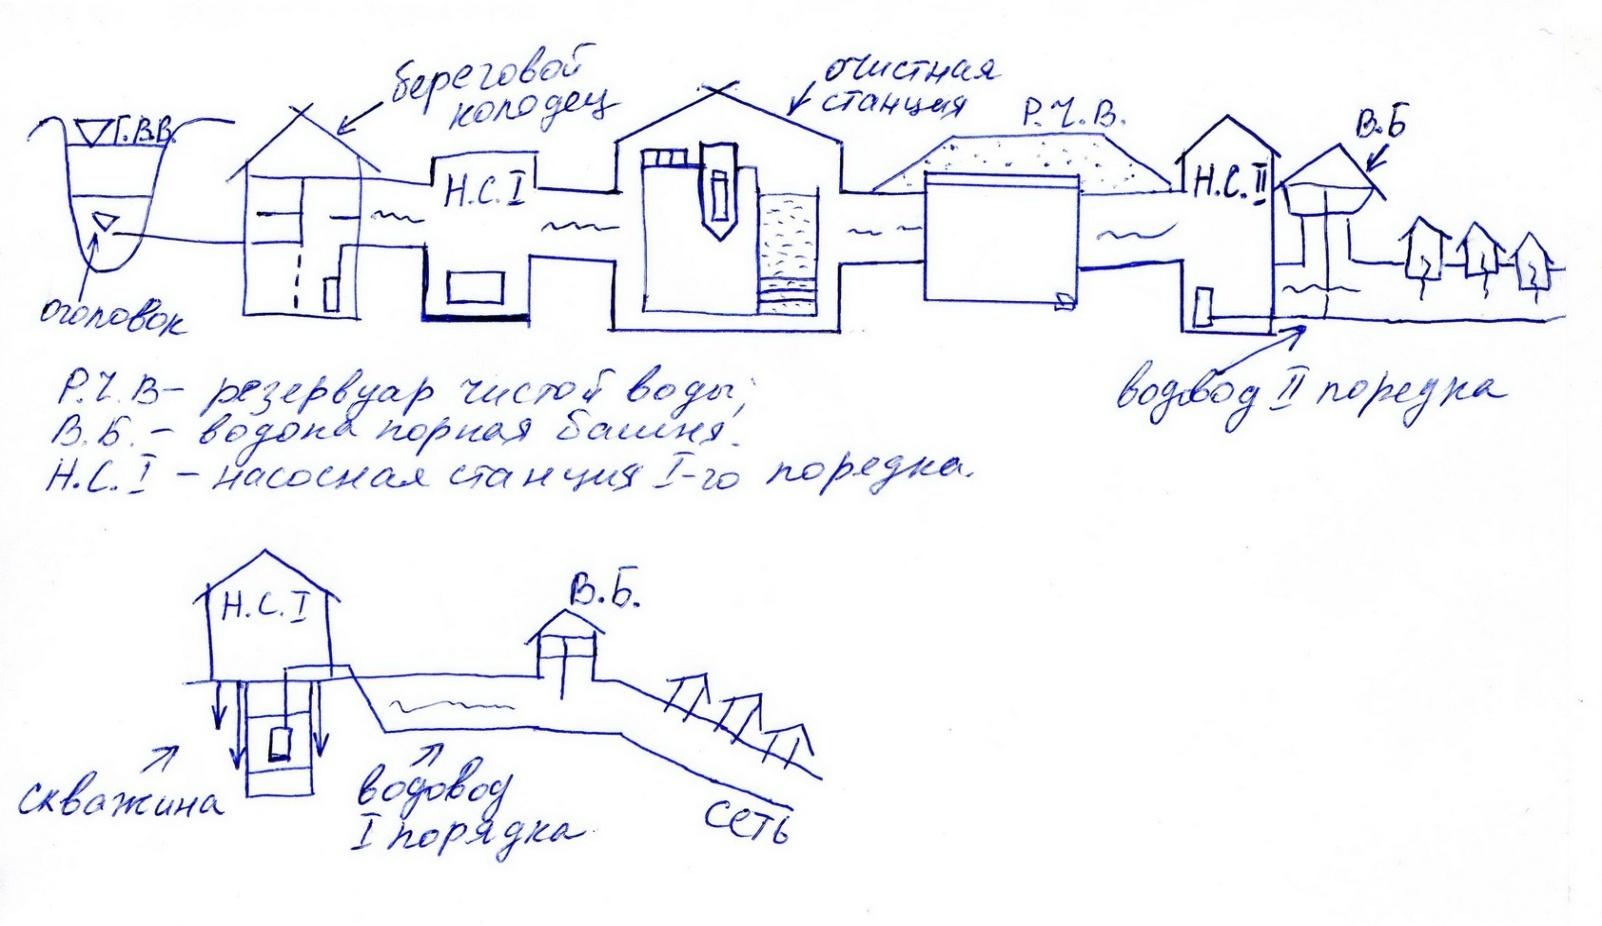 береговой
колодец
очистная
станция
Р.Ч.В.
В.Б
Г.В.В.
Н.С.I
Н.С.II
оголовок
водовод II поредка
Р.Ч.В – резервуар чистой воды;
В.Б. – водона порная башня.
Н.С.I – насосная станция I-го поредка.
Н.С.I
В.Б.
скважина
водовод
I порядка
сеть